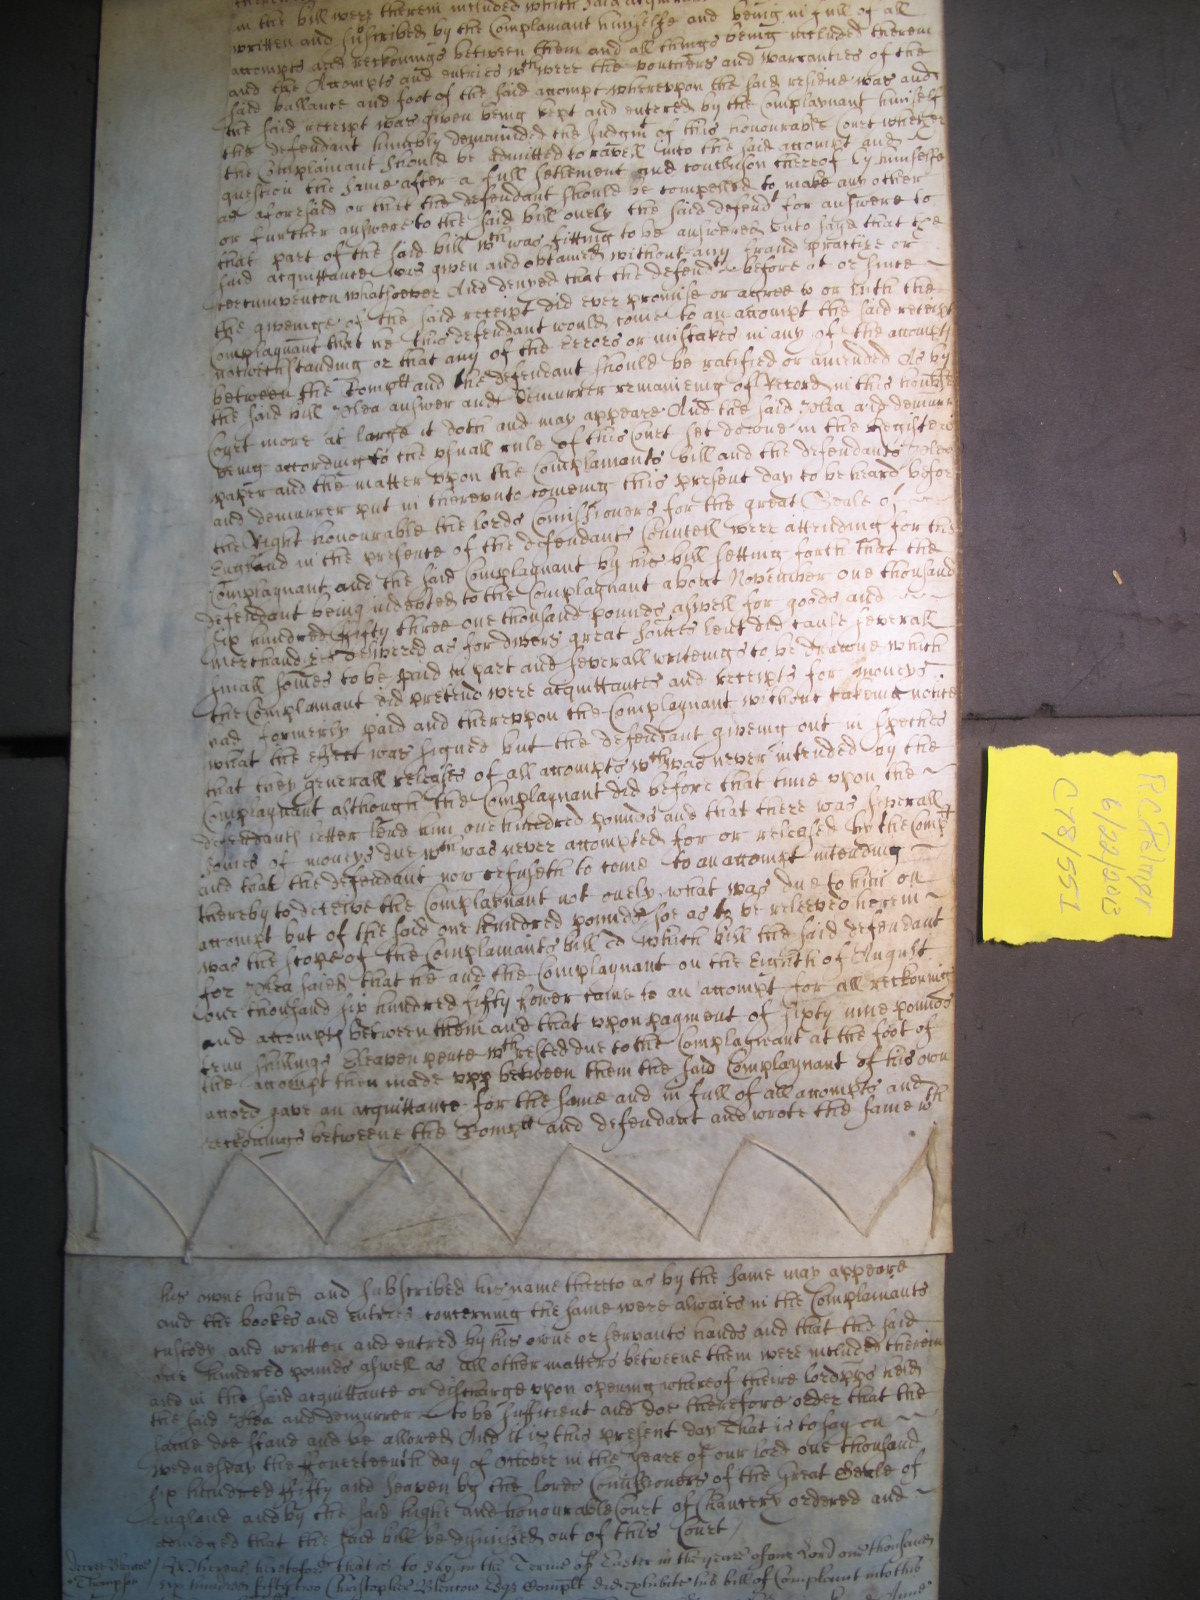 in the bill were therein included which said acquittance
written and subscribed by the Complainant himselfe and being in full of all
accompts and reckonings betweene them and all things being included therein
and the Accompts and entries wch were the vouchers and warranties of the
said ballance and foot of the said accompt whereupon the said residue was and
the said receipt was given being kept and entered by the Complaynant himself
the defendant humbly demannded the Judgmt of this honourable Court whether
the Complainant should be admitted to ravell into the said accompt and
question the same after a full settlement and conclusion thereof by himselfe
as aforesaid or that the defendant should be compelled to make any other
or further answere to the said bill onely the said defendt for answere to
that part of the said bill wch was fitting to be answered unto says that the
said acquittance was given and obtained without any fraud practize or
circumvencon whatsoever And denyed that the defendt before at or since
the giveinge of the said receipt did ever promise or agree to or with the
Complaynant that he this defendant would come to an accompt the said receipt
notwithstanding or that any of the Errors or mistakes in any of the accompts
between the Complt and the defendant should be ratified or amended As by
the said bill Plea answer and demurrer remaineing of Record in this honoble
Court more at large it doth and may appeare And the said Plea and demurrer
being according to the usuall rule of this Court set downe in the Registers
paper and the matter upon the Complainants bill and the defendants Plea
and demurrer put in thereunto comeing this present day to be heard before
the Right honourable the lords Comissioners for the great Seale of
England in the presence of the defendants Councell were attending for the
Complaynant and the said Complaynant by his bill setting forth that the
defendant being indebted to the Complaynant about November one thousand
six hundred fifty three one thousand pounds aswell for goods and
merchandize delivered as for divers great somes lent did cause severall
small somes to be paid in part and severall writeings to be drawne which
the Complainant did pretend were acquittances and receipts for moneys
had formerly paid and thereupon the Complaynant without takeing notice
what the effect was signed but the defendant giveing out in speeches
that they generall releases of all accompts wch was never intended by the
Complaynant although the Complaynant did before that time upon the
defendants letter lend him one hundred pounds and that there was severall
somes of moneys due wch was never accompted for or released by the Complt
and that the defendant now refuseth to come to an accompt intending
thereby to deceive the Complaynant not onely what was due to him on
accompt but of the said one hundred pounds soe as to be releeved herein
was the scope of the Complainants bill To which bill the said defendant
for Plea saied that he and the Complaynant on the Eighth of August
one thousand six hundred fifty fower came to an accompt for all reckonings
and accompts between them and that upon payment of sixty nine pounds
tenn shillings Eleaven pence wch rested due to the Complaynant at the foot of
the accompt then made upp between them the said Complaynant of his own
accord gave an acquittance for the same and in full of all accompts and
reckonings betweene the Complt and defendant and wrote the same wth
his owne hand and subscribed his name thereto as by the same may appeare
and the bookes and entries concerning the same were alwaies in the Complainants
custody and written and entred by his owne or servants hands and that the said
one hundred pounds aswell as all other matters betweene them were included therein
and in the said acquittance or discharge upon opening whereof theire lordpps held
the said Plea and demurrer to be sufficient and doe therefore order that the
same doe stand and be allowed And it is this present day That is to say on
Wednesday the ffowerteenth day of October in the yeare of our lord one thousand
six hundred ffifty and seaven by the lords Comissioners of the Great Seale of
England and by the said highe and honourable Court of Chancery ordered and
adiudged that the said bill be dismissed out of this Court
Thompson
Whereas heretofore that is to say in the Terme of Easter in the yeare of our Lord one thousand
six hundred fifty two Christopher Blencow Esqr Complt did exhibite his bill of Complaint into this
RC Palmer
6/22/2013
C78/551